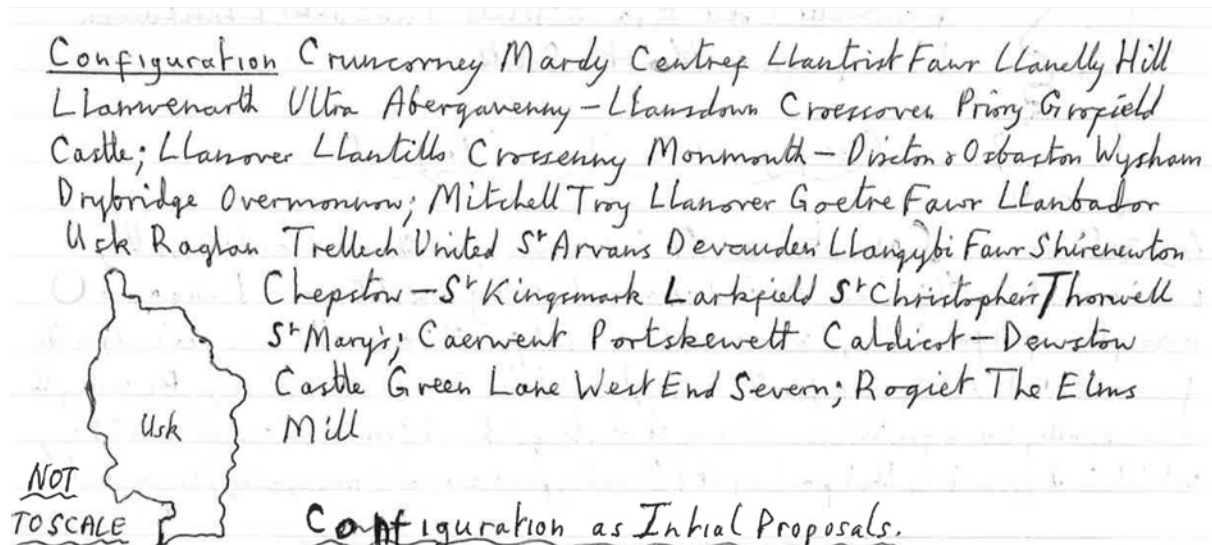 Configuration Cruncorney Mardy Centref Llantrist Fawr Llanelly Hill
Llanwenarth Ultra Abergavenny – Llansdown Croescover Priory Grofield
Castle; Llanover Llantillo Crossenny Monmouth – Dixton & Osbaston Wysham
Drybridge Overmonnow; Mitchell Troy Llanover Goetre Fawr Llanbador
Usk Raglan Trellech United St Arvans Devauden Llangybi Fawr Shirenewton
Chepstow – St Kingsmark Larkfield St Christophers Thornwell
St Mary's; Caerwent Portskewett Caldicot – Dewstow
Castle Green Lane West End Severn; Rogiet The Elms
Usk Mill
NOT
TO SCALE Configuration as Initial Proposals.